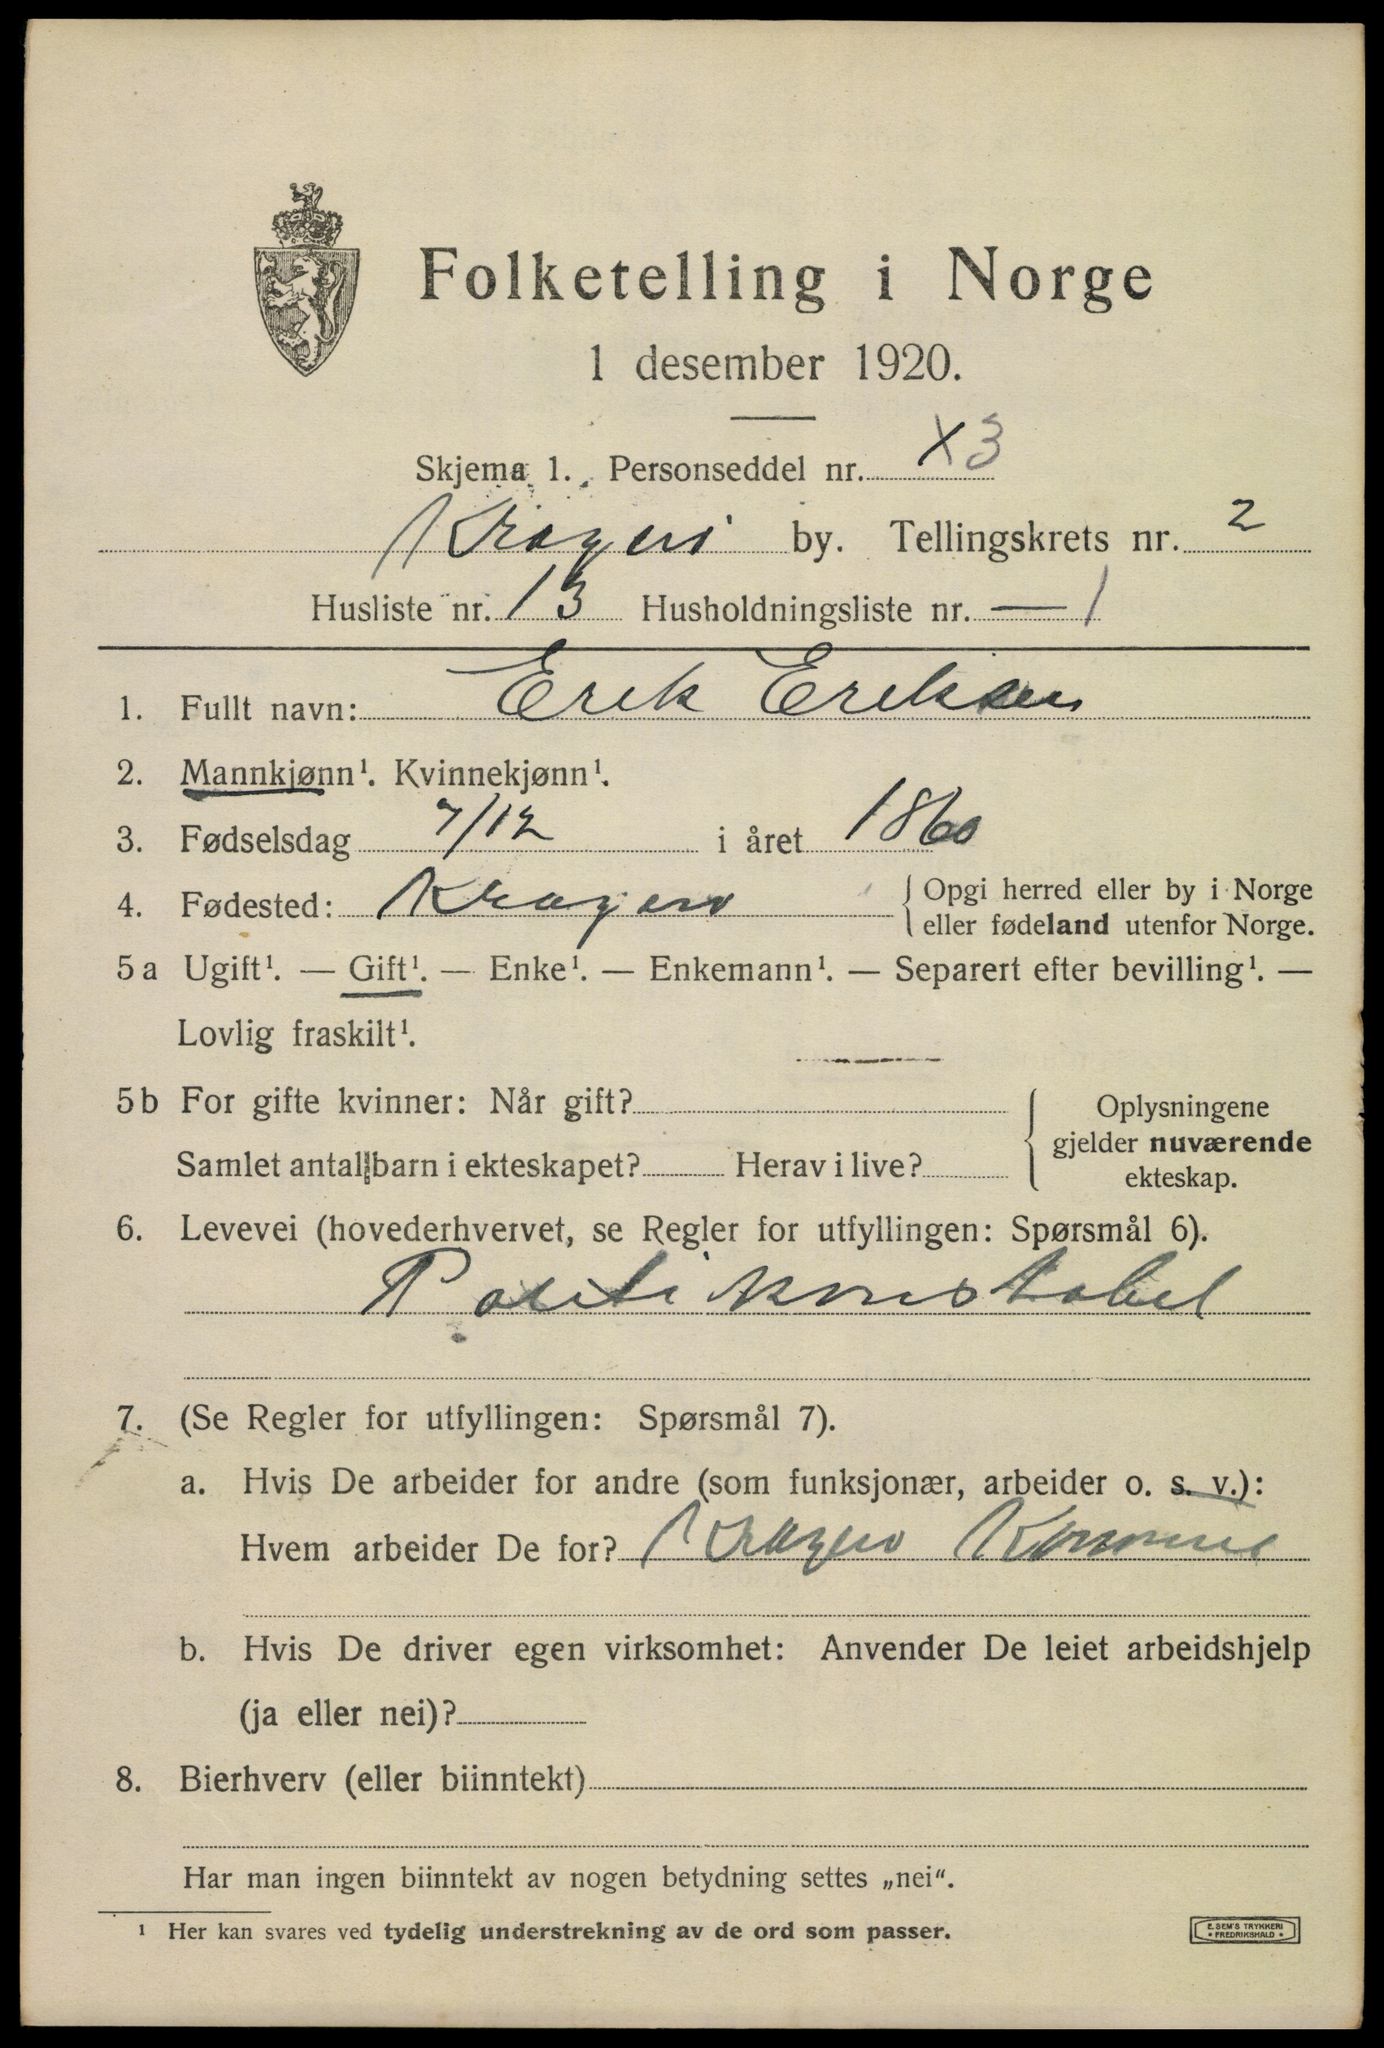 Folketelling i Norge
1 desember 1920.
Skjema 1. Personseddel nr. X3
Kragerö by. Tellingskrets nr. 2
Husliste nr. 13 Husholdningsliste nr. — 1
1. Fullt navn: Erik Eriksen
2. Mannkjønn¹. Kvinnekjønn¹.
3. Fødselsdag 7/12 i året 1860
4. Fødested: Kragerø { Opgi herred eller by i Norge
eller fødeland utenfor Norge.
5a Ugift¹. — Gift¹. — Enke¹. — Enkemann¹. — Separert efter bevilling¹. —
Lovlig fraskilt¹.
5b For gifte kvinner: Når gift?
Samlet antall barn i ekteskapet? Herav i live?
Oplysningene
gjelder nuværende
ekteskap.
6. Levevei (hovederhvervet, se Regler for utfyllingen: Spørsmål 6).
Politikonstabel
7. (Se Regler for utfyllingen: Spørsmål 7).
a. Hvis De arbeider for andre (som funksjonær, arbeider o. s. v.):
Hvem arbeider De for? Kragerø Komune
b. Hvis De driver egen virksomhet: Anvender De leiet arbeidshjelp
(ja eller nei)?
8. Bierhverv (eller biinntekt)
Har man ingen biinntekt av nogen betydning settes „nei“.
¹ Her kan svares ved tydelig understrekning av de ord som passer.
E. SEM'S TRYKKERI
• FREDRIKSHALD •